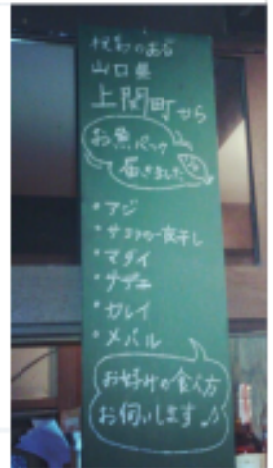 山口県
上関町から
お魚パック
届きました
・アジ
・サヨリの一夜干し
・マダイ
・サザエ
・カレイ
・メバル
お好みの食べ方
お伺いします♪